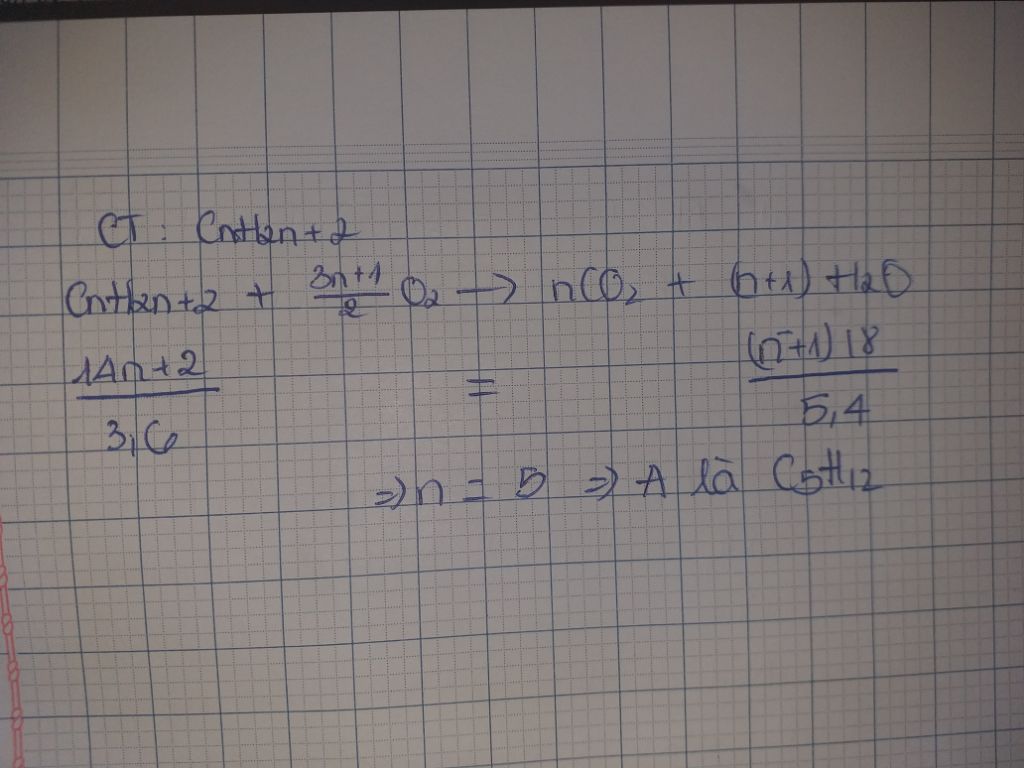 CT: CnH2n+2
CnH2n+2 + 3n+1/2 O2 → nCO2 + (n+1) H2O
14n+2/3,6 = (n+1)18/5,4
⇒ n = 5 ⇒ A là C5H12